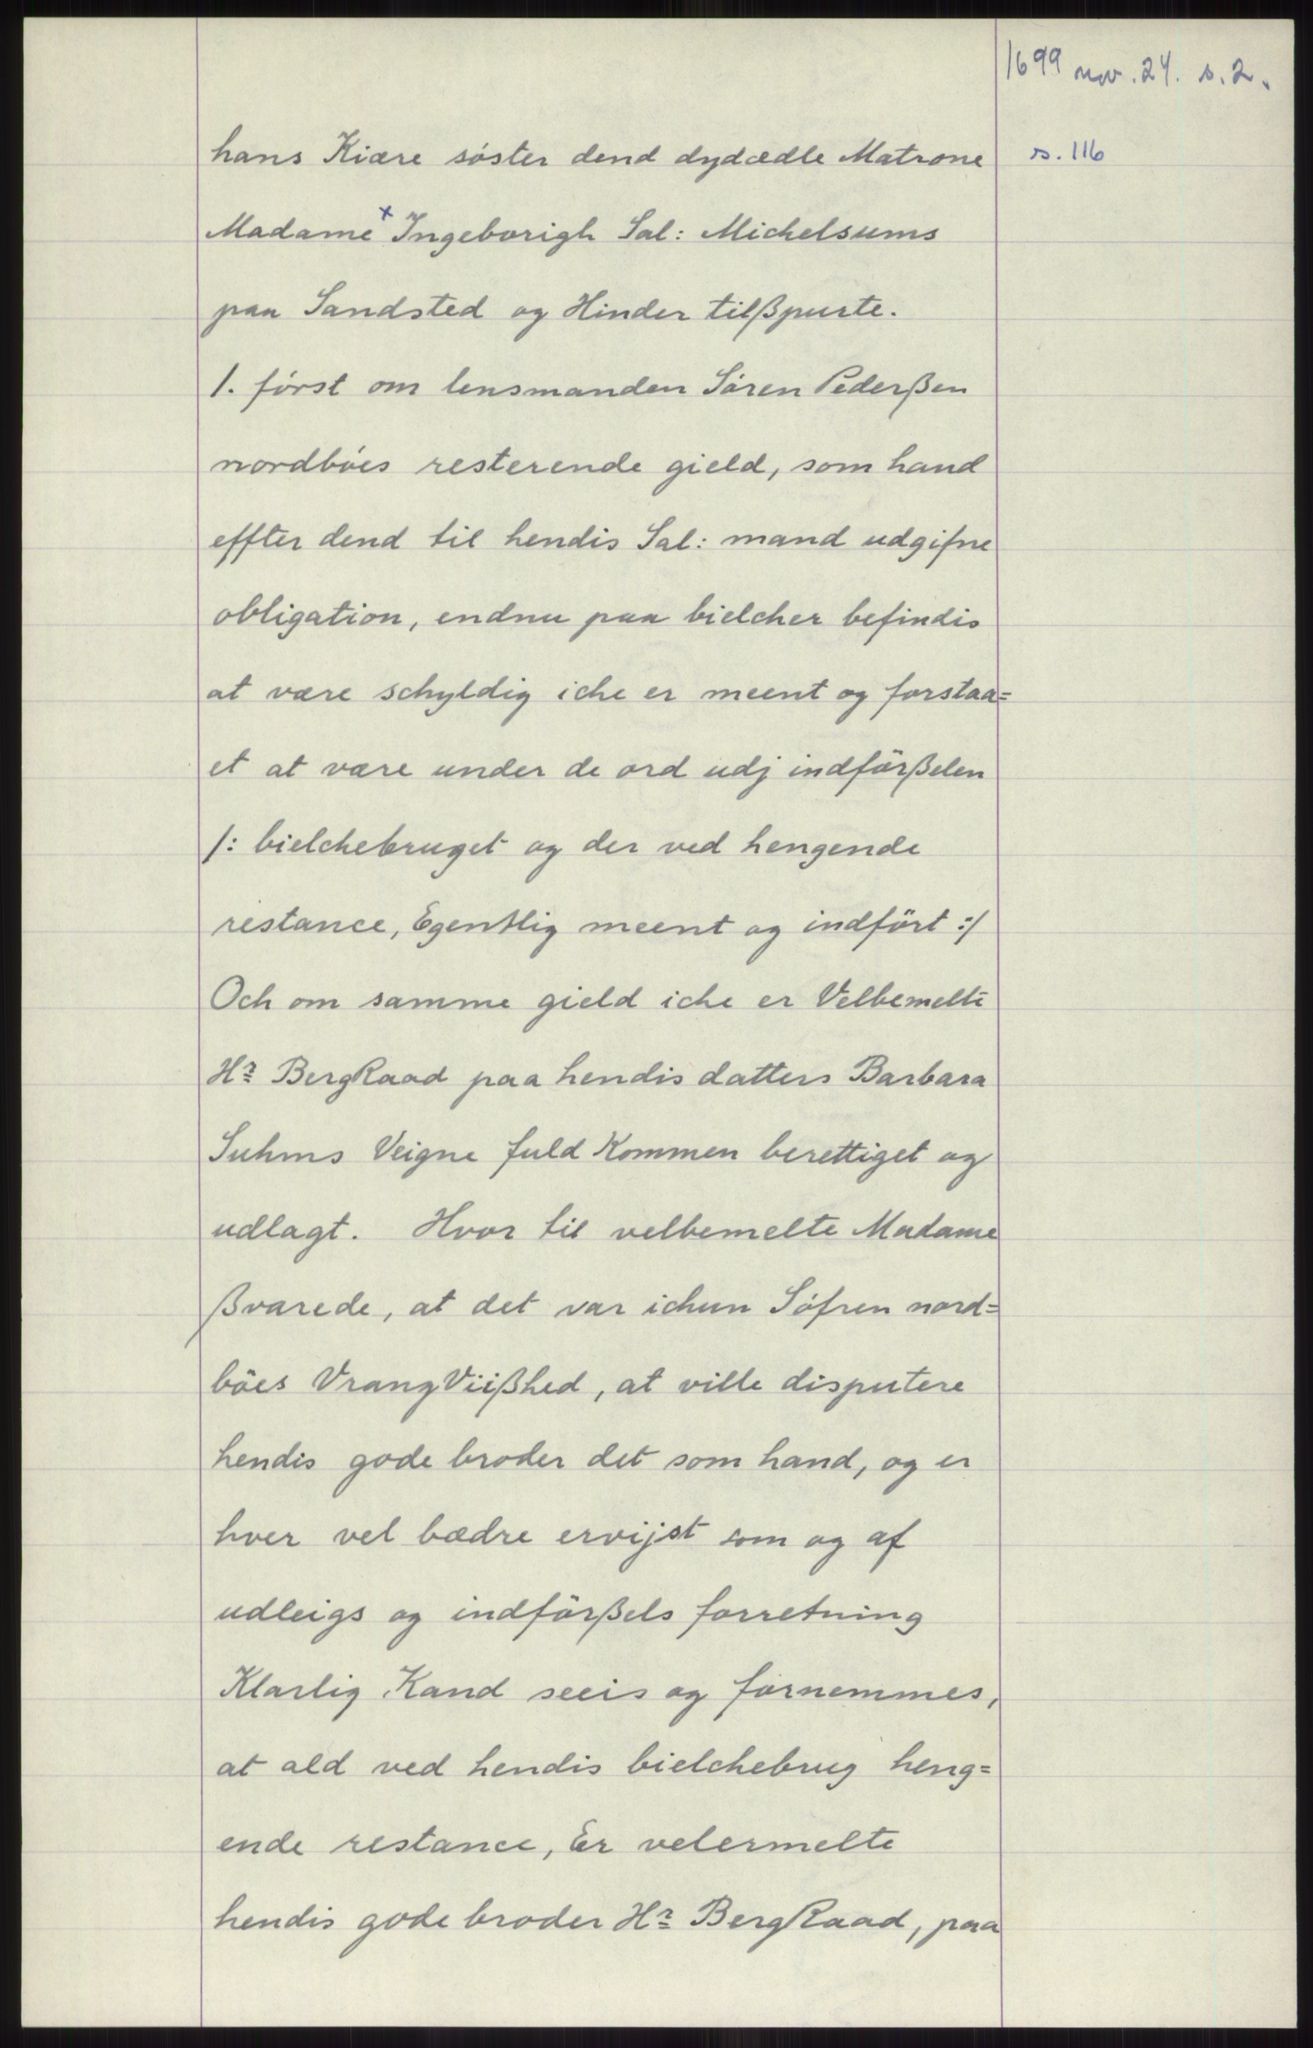 1699 nov. 24. s. 2.
hans Kiære søster dend dydædle Matrone
s. 116
Madame x Ingeborigh Sal: Michelsums
paa Sandsted og Hinder tilßpurte.
1. først om lensmanden Søren Pederßen
nordbøes resterende gield, som hand
effter dend til hendis Sal: mand udgifne
obligation, endnu paa bielcher befindis
at være schyldig iche er meent og forstaa=
et at være under de ord udj indførßelen
/: bielchebruget og der ved hengende
restance, Egentlig meent og indført :/
Och om samme gield iche er Velbemelte
Hr BergRaad paa hendis datters Barbara
Suhms Veigne fuld Kommen berettiget og
udlagt. Hvor til velbemelte Madame
ßvarede, at det var ichun Søfren nord=
bøes VrangViißhed, at ville disputere
hendis gode broder det som hand, og er
hver vel bædre ervijst som og af
udleigs og indførßels forretning
Klarlig Kand seeis og fornemmes,
at ald ved hendis bielchebrug heng=
ende restance, Er velermelte
hendis gode broder Hr BergRaad, paa